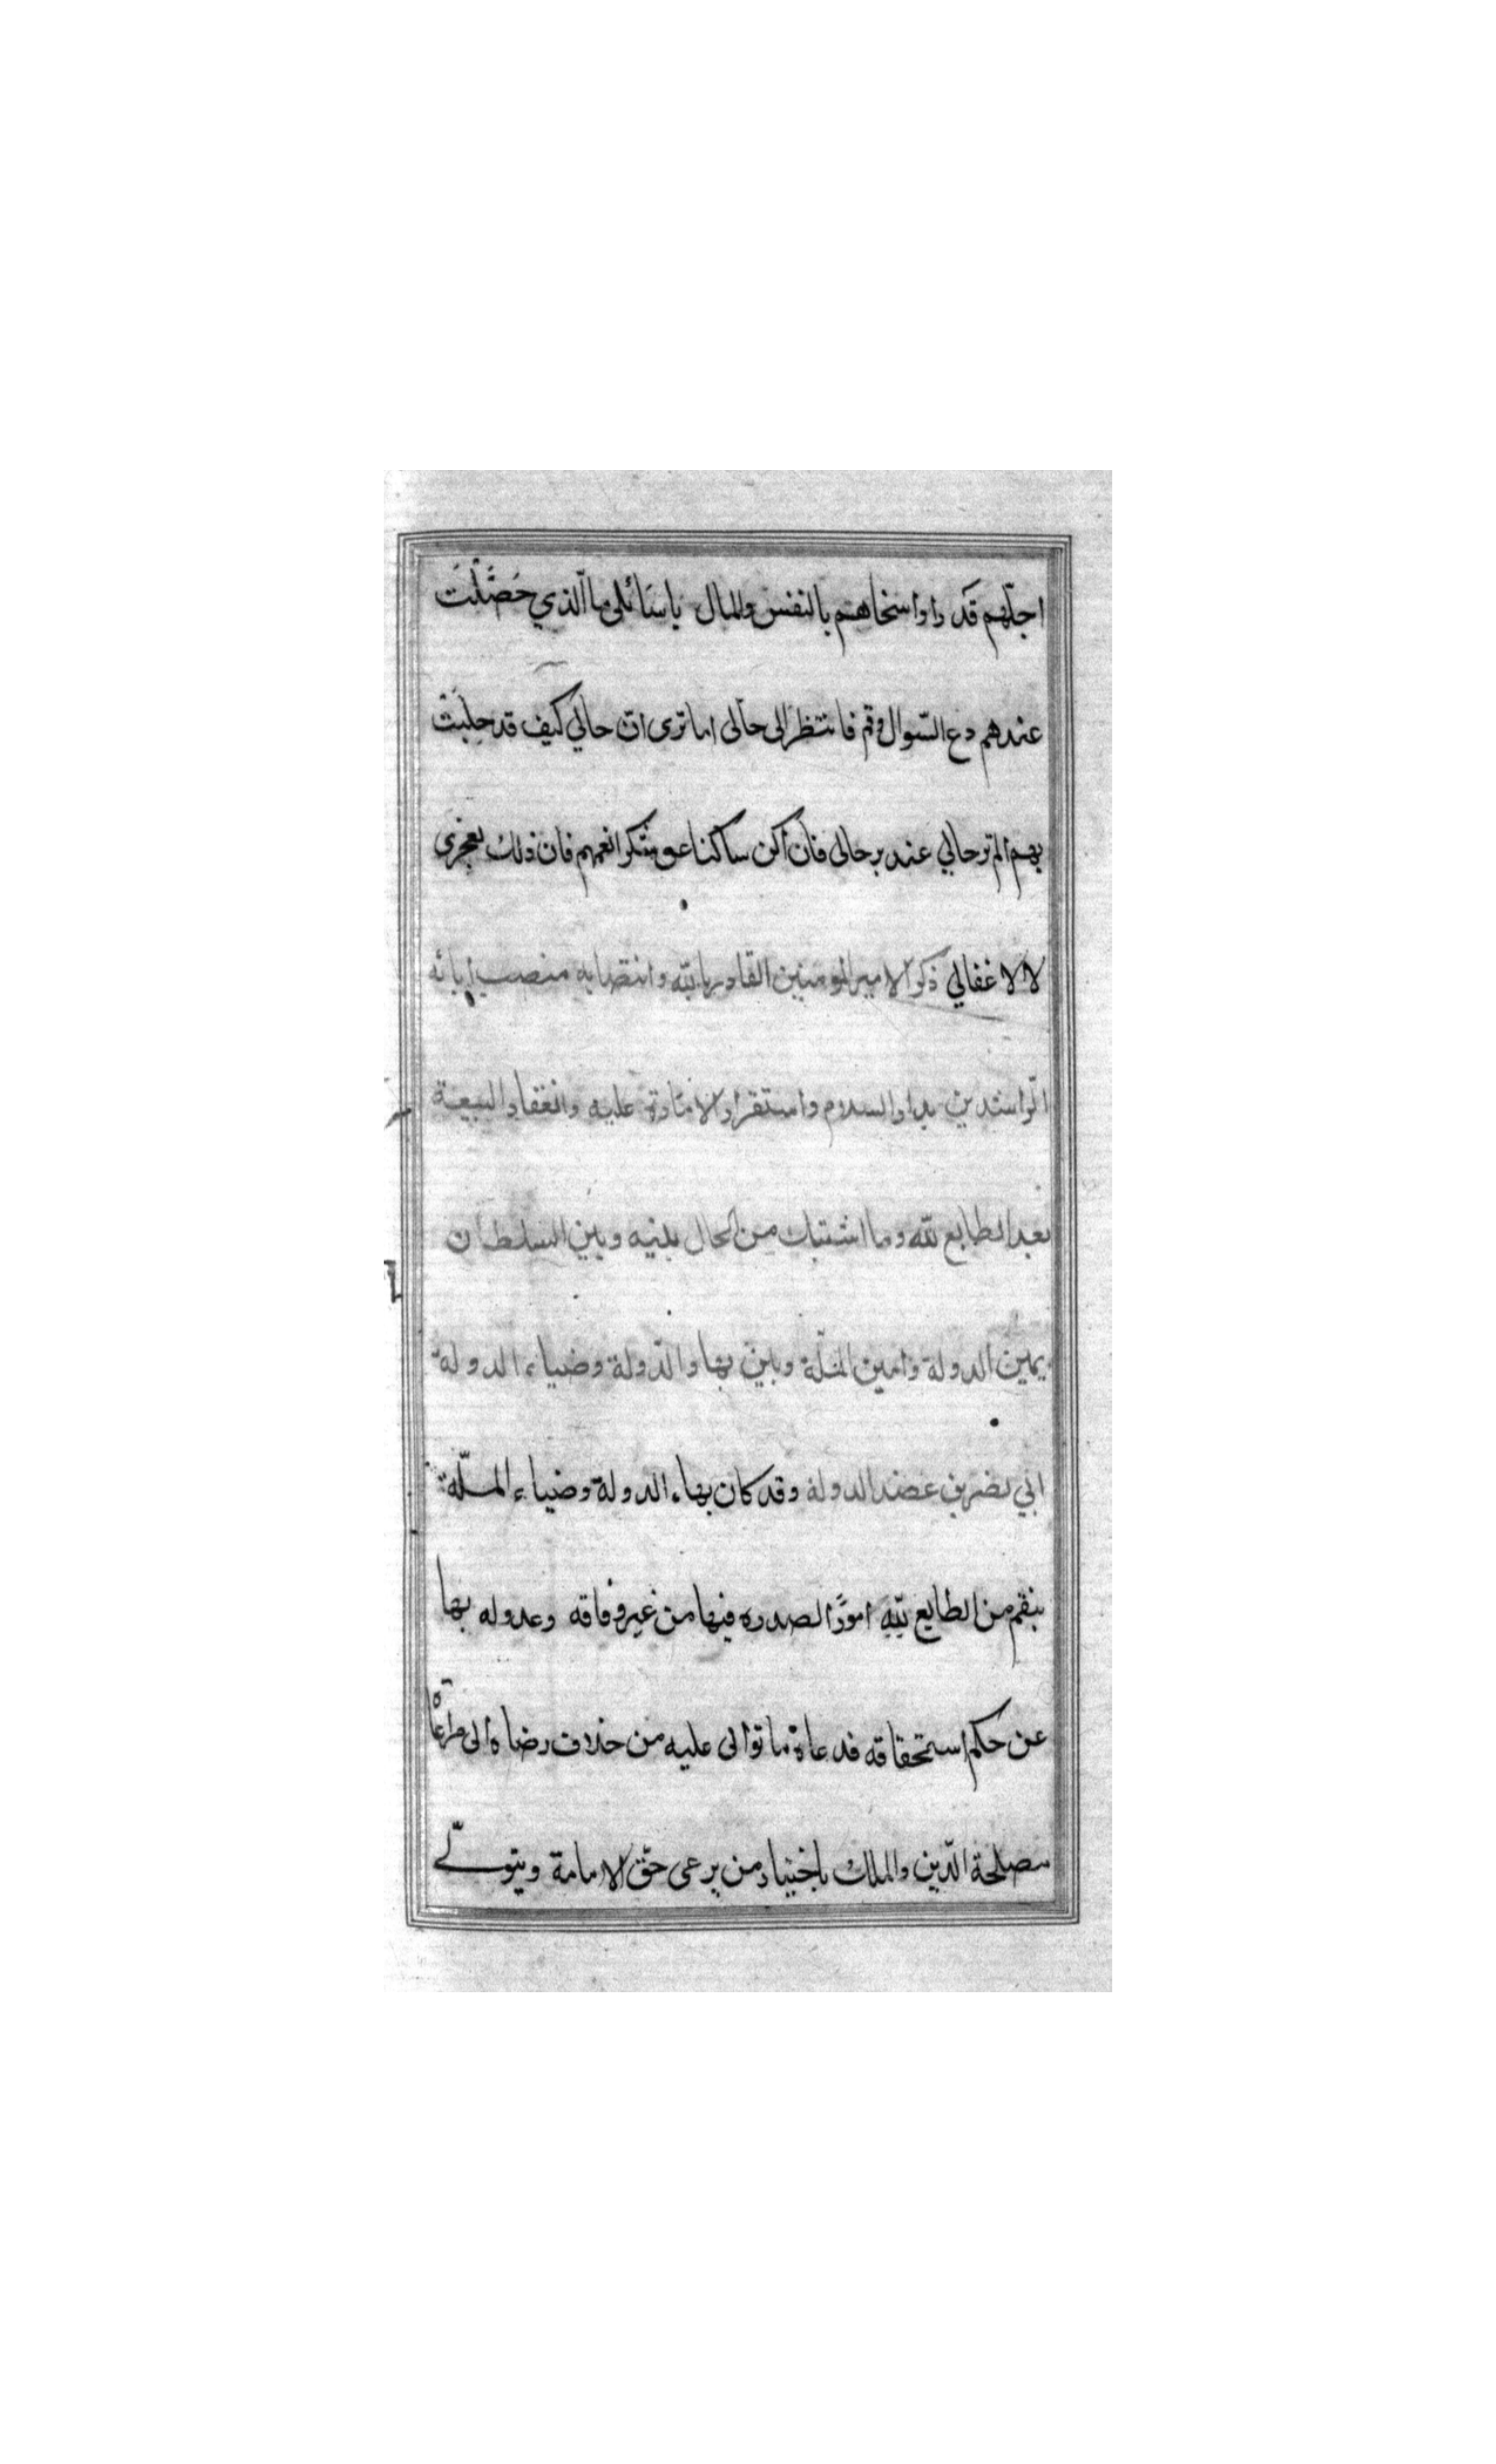 اجلّهم قَد را واسخاهم بالنفس والمال ياسَائلى ما الّذي حَصَّلْتَ
عندهم دع السّوال وقم فانتظر الى حالى اما ترى ان حالي كيف قد حلِيَتْ
بهم الم تر حالي عند بر حالى فان أكن ساكنا عن شكر انعمهم فان ذلك بعجزى
لا لاغفالي ذكر الامير المومنين القادر بالله وانتصابه منصب ابائه
الرّاشدين بدار السلام واستقرار الامارة عليه وانعقاد البيعة
بعد الطايع لله وما اشتبك من الحال بينه وبين السلطان
يمين الدولة وامين الملّة وبين بهاء الدّولة وضياء الدولة
ابي نصر بن عضد الدولة وقد كان بهاء الدولة وضياء الملّة
ينقم من الطايع لله امورًا لصدره فيها من غير وفاقه وعدوله بها
عن حكم استحقاقه فدعاه ما توالى عليه من خلاف رضاه الى مراعاة
مصلحة الدّين والملك باختيار من يرعى حقّ الامامة ويتولّے